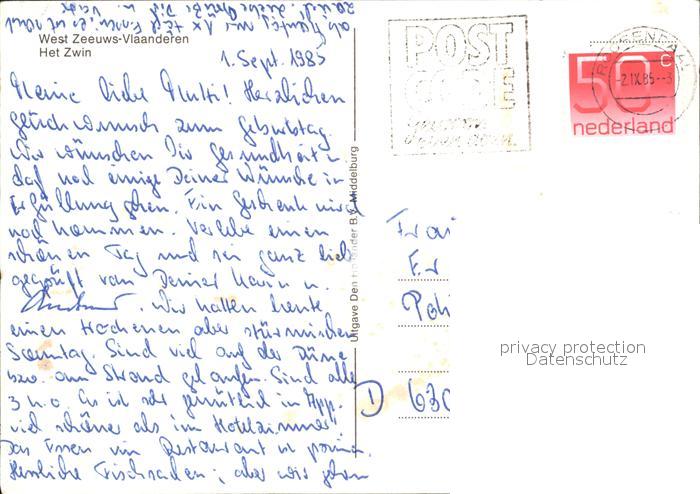 West Zeeuws-Vlaanderen
Het Zwin
1. Sept. 1985
Meine liebe Mutti! Herzlichen
Glückwunsch zum Geburtstag.
Wir wünschen Dir Gesundheit u.
daß noch einige Deiner Wünsche in
Erfüllung gehen. Ein Geschenk wird
noch kommen. Verlebe einen
schönen Tag und sei ganz lieb
gegrüßt von Deiner Karin u.
Wir hatten heute
einen trockenen aber stürmischen
Sonntag. Sind viel auf der Düne
bzw. am Strand gelaufen. Sind alle
3 k.o. Es ist sehr gemütlich im App.
viel schöner als im Hotelzimmer.
Das Essen im Restaurant ist prima.
Herrliche Fischsachen; aber wir gehen
Uitgave Den Hollander B.V. Middelburg
POST
CODE
2.IX.85
50 c
nederland
D 630
privacy protection
Datenschutz